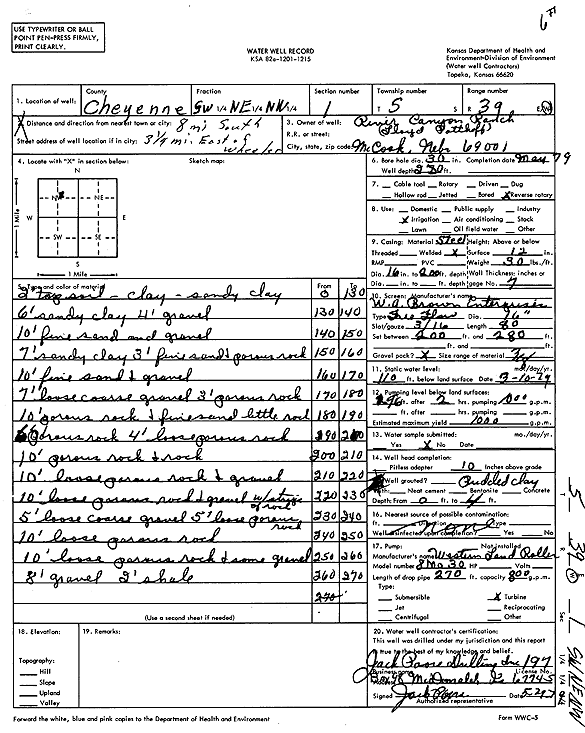 USE TYPEWRITER OR BALL
POINT PEN-PRESS FIRMLY,
PRINT CLEARLY.
WATER WELL RECORD
KSA 82a-1201-1215
Kansas Department of Health and
Environment-Division of Environment
(Water well Contractors)
Topeka, Kansas 66620
1. Location of well:
County
Cheyenne
Fraction
SW 1/4 NE 1/4 NW 1/4
Section number
1
Township number
T 5 S
Range number
R 39 E/W
Distance and direction from nearest town or city: 8 mi South
Street address of well location if in city: 3 1/4 mi. East of
Wheeler
3. Owner of well: River Canyon Ranch
R.R. or street:
City, state, zip code: McCook, Nebr 69001
4. Locate with "X" in section below:
Sketch map:
N
NW NE
W E
SW SE
S
1 Mile
1 Mile
6. Bore hole dia. 30 in. Completion date May 79
Well depth 280 ft.
7. Cable tool Rotary Driven Dug
Hollow rod Jetted Bored X Reverse rotary
8. Use: Domestic Public supply Industry
X Irrigation Air conditioning Stock
Lawn Oil field water Other
9. Casing: Material Steel Height: Above or below
Threaded Welded X Surface 12 in.
RMP PVC Weight 30 lbs./ft.
Dia. 16 in. to 200 ft. depth Wall Thickness: inches or
Dia. in. to ft. depth gage No. 7
5. Type and color of material From To
2' top soil - clay - sandy clay 0 130
6' sandy clay 4' gravel 130 140
10' fine sand and gravel 140 150
7' sandy clay 3' fine sand & porous rock 150 160
10' fine sand & gravel 160 170
7' loose coarse gravel 3' porous rock 170 180
10' porous rock & fine sand little rock 180 190
6' porous rock 4' loose porous rock 190 200
10' porous rock & rock 200 210
10' loose porous rock & gravel 210 220
10' loose porous rock & gravel w/strips of rock 220 230
5' loose coarse gravel 5' loose porous rock 230 240
10' loose porous rock 240 250
10' loose porous rock & some gravel 250 260
8' gravel 2' shale 260 270
(Use a second sheet if needed)
10. Screen: Manufacturer's name
W.A. Brown Enterprises
Type Free Flow Dia. 16"
Slot/gauze 3/16 Length 80
Set between 200 ft. and 280 ft.
ft. and ft.
Gravel pack? X Size range of material
11. Static water level: mo./day/yr.
110 ft. below land surface Date 3-10-79
12. Pumping level below land surfaces:
ft. after 2 hrs. pumping 1000 g.p.m.
ft. after hrs. pumping g.p.m.
Estimated maximum yield 1000 g.p.m.
13. Water sample submitted: mo./day/yr.
Yes X No Date
14. Well head completion:
Pitless adapter 10 Inches above grade
Well grouted? Puddled clay
With: Neat cement Bentonite Concrete
Depth: From 0 ft. to ft.
16. Nearest source of possible contamination:
ft. Direction Type
None
Well disinfected upon completion? Yes No
17. Pump: Not installed
Manufacturer's name Western Land Roller
Model number 8 Mo 30 HP Volts
Length of drop pipe 270 ft. capacity 800 g.p.m.
Type:
Submersible X Turbine
Jet Reciprocating
Centrifugal Other
18. Elevation:
Topography:
Hill
Slope
Upland
Valley
19. Remarks:
20. Water well contractor's certification:
This well was drilled under my jurisdiction and this report
is true to the best of my knowledge and belief.
Jack Poore Drilling Inc 197
Business name License No.
Box 98 McDonald, Ks 67745
Signed Jack Poore Date
Authorized representative
Forward the white, blue and pink copies to the Department of Health and Environment
Form WWC-5
5
39 W
1
SW NE NW